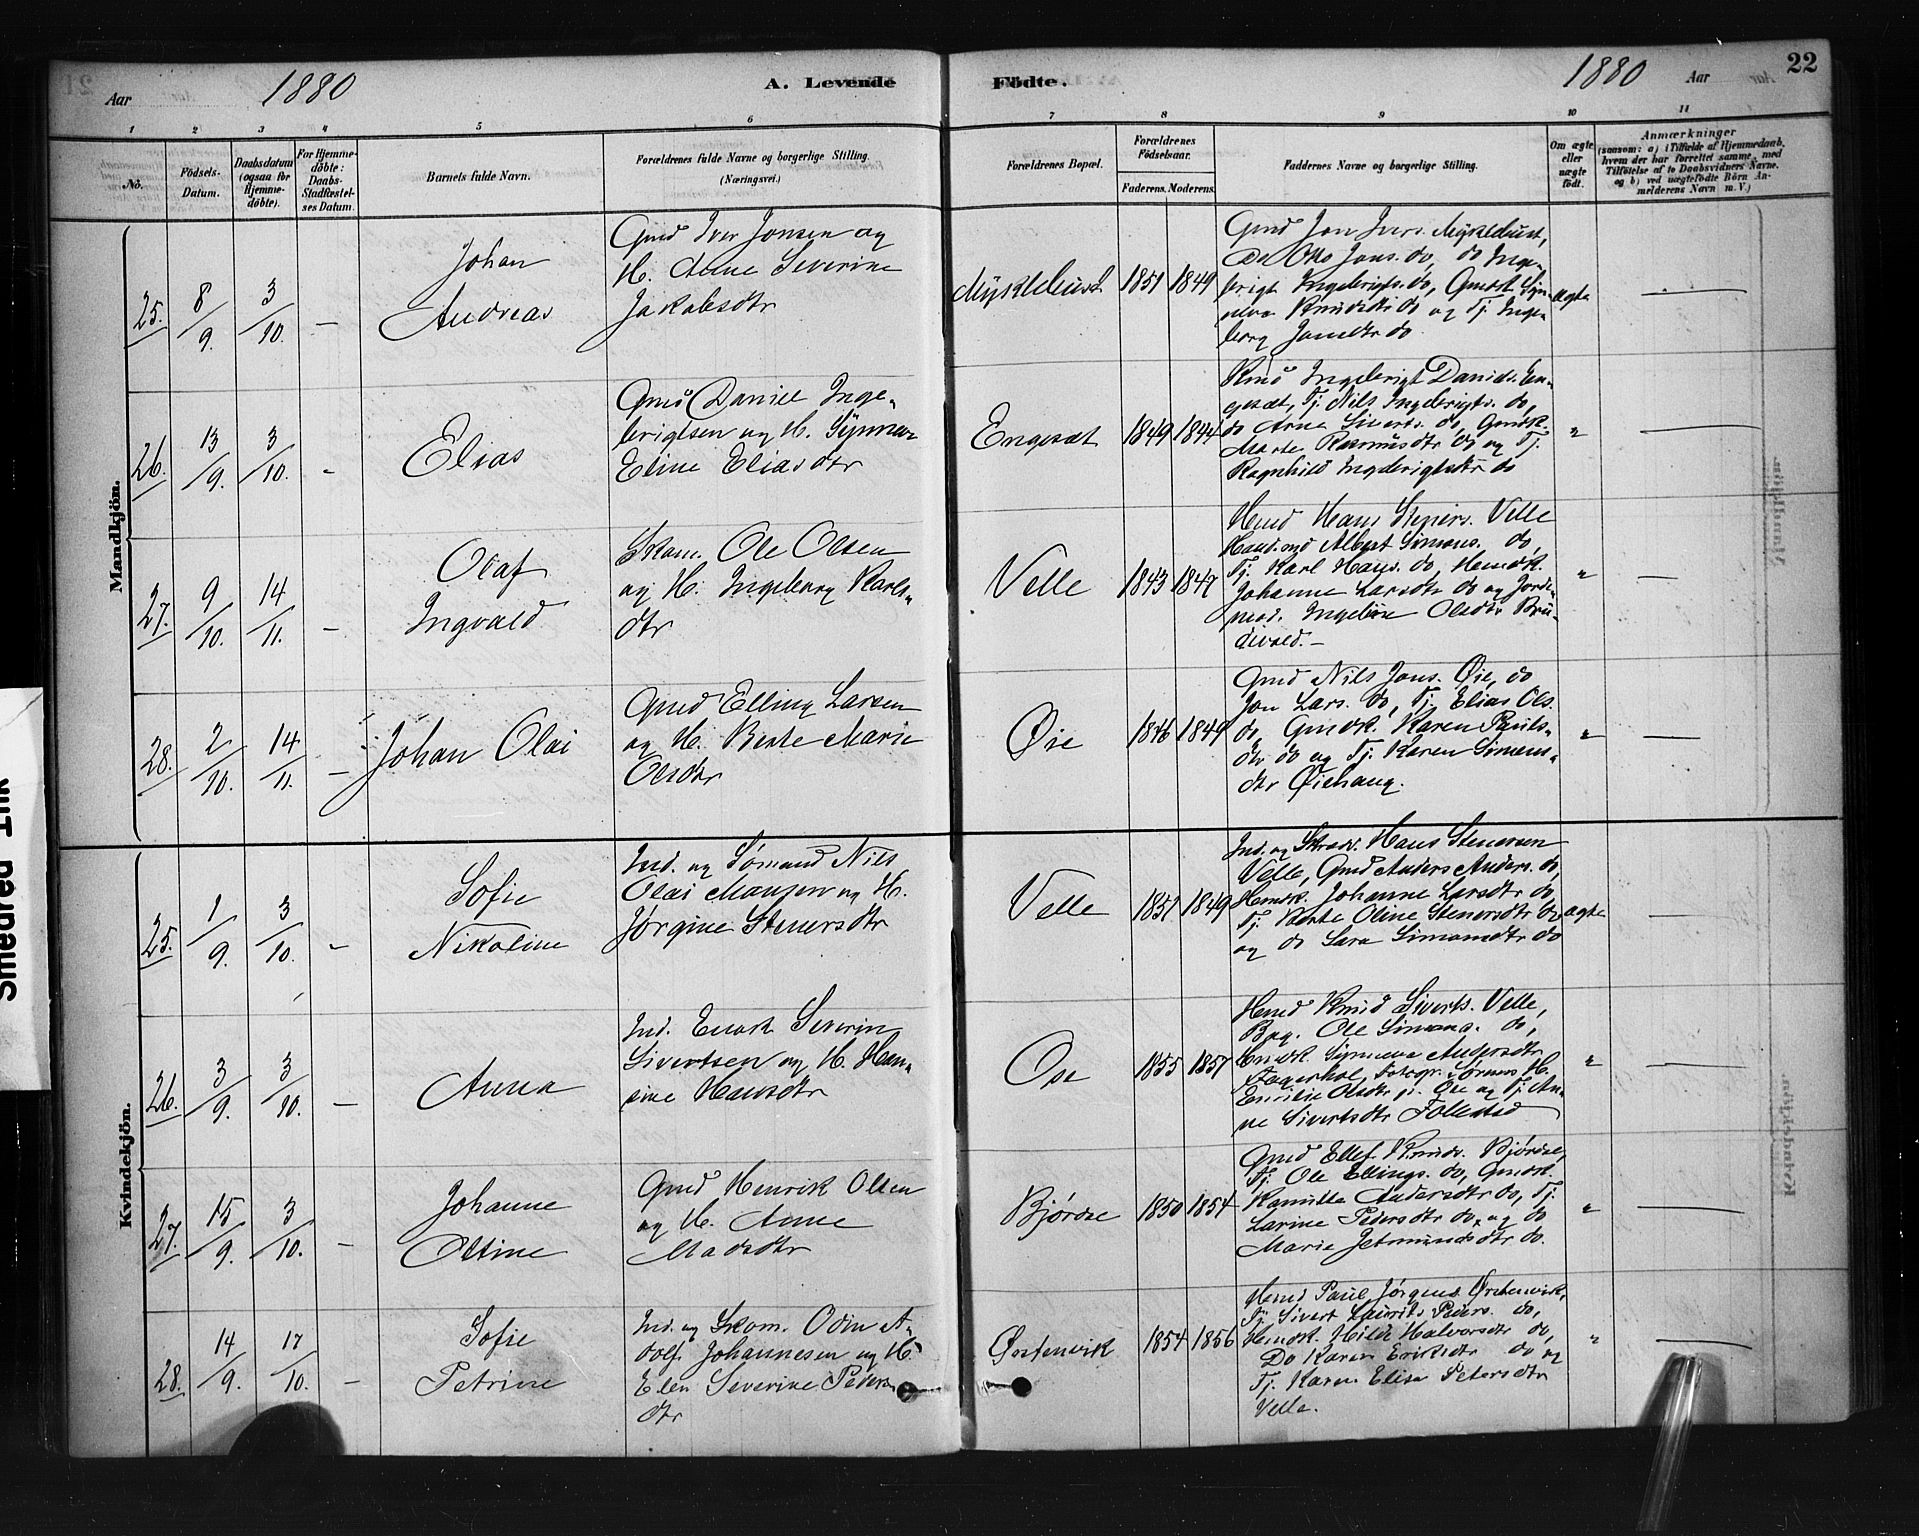 Aar 1880 A. Levende Födte. 1880 Aar 22
1 2 3 4 5 6 7 8 9 10 11
No. Födsels-Datum. Daabsdatum (ogsaa for Hjemme-döbte). For Hjemme-döbte: Daabs-Stadfæstel-ses Datum. Barnets fulde Navn. Forældrenes fulde Navne og borgerlige Stilling. (Næringsvei.) Forældrenes Bopæl. Forældrenes Födselsaar. Faderens. Moderens. Faddernes Navne og borgerlige Stilling. Om ægte eller uægte födt. Anmærkninger (saasom: a) i Tilfælde af Hjemmedaab, hvem der har forrettet samme, med Tilföielse af to Daabsvidners Navne, og b) ved uægtefödte Börn An-melderens Navn m. V.)
Mandkjön.
25. 8/9. 3/10. —
Johan
Andreas
Gmd Iver Jonsen og
H. Anne Severine
Jakobsdtr
Myklebust 1851 1849
Gmd Jon Ivers. Myklebust,
Do Otto Jons. do, do Inge-
brigt Ingebrigts. do, Gmdk Syn-
neva Knudsdtr do og Tj. Inge-
borg Jonsdtr do
ægte —
26. 13/9. 3/10. -
Elias
Gmd Daniel Inge-
brigtsen og H. Synneva
Eline Eliasdtr
Engesæt 1849 1844
Kmd Ingebrigt Daniels. En-
gesæt, Tj. Nils Ingebrigts. do,
do Arne Siverts. do, Gmdk.
Marte Rasmusdtr do og Tj.
Ragnhild Ingebrigtsdtr do
" —
27. 9/10. 14/11. —
Olaf
Ingvald
Skom. Ole Olsen
og H. Ingeborg Karls-
dtr
Velle 1843 1847
Hmd Hans Steners. Velle
Albert Simons. do,
Tj. Karl Hans. do, Hmdk.
Johanne Larsdtr do og Jorde-
mod. Olsdtr Bru-
devold. -
" —
28. 2/10. 14/11. —
Johan Olai
Gmd Elling Larsen
og H. Berte Marie
Olsdtr
Øie 1846 1849
Gmd Nils Jons. Øie, do
Jon Lars. do, Tj. Elias Ols.
do, Gmdk. Karen Pauls-
dtr do og Tj. Karen Simons-
dtr Øiehaug.
" —
Kvindekjön.
25. 1/9. 3/10. -
Sofie
Nikoline
Ind. og Sømand Nils
Olai Monsen og H.
Jørgine Stenersdtr
Velle 1851 1849
Ind. og Skræd. Hans Stenersen
Velle, Gmd Anders Anders. do,
Hmdk. Johanne Larsdtr do,
Tj. Berte Oline Stenersdtr do
og do Sara Simonsdtr do
ægte —
26. 3/9. 3/10. —
Anna
Ind. Enok Severin
Sivertsen og H. Han-
sine Hansdtr
Ose 1855 1857
Hmd Knud Siverts. Velle,
Bag. Ole Simons. do,
Hmdk. Synneva Andersdtr
Fagerhol, Fotogr. H.
Emilie Olsdtr Øie og Tj. An-
ne Sivertsdtr Follestad
" —
27. 15/9. 3/10. —
Johanne
Oltine
Gmd Henrik Olsen
og H. Anne
Madsdtr
Bjørdse 1850 1854
Gmd Ellef Knuds. Bjørdse,
Tj. Ole Ellings. do, Gmdk.
Kamilla Andersdtr do, Tj.
Larine Pedersdtr do, og do
Marie Jetmundsdtr do.
" —
28. 14/9. 17/10. —
Sofie
Petrine
Ind. og Skom. Odin A-
dolf Johannesen og H.
Elen Severine Peders-
dtr
Østenvik 1854 1856
Hmd Paul Jørgens. Østenvik,
Tj. Sivert Laurits Peders. do,
Hmdk. Hilde Halvorsdtr do,
Do Karen Eriksdtr do og
Tj. Karen Elisa Petersdtr
Velle.
" —
Smedred Ink